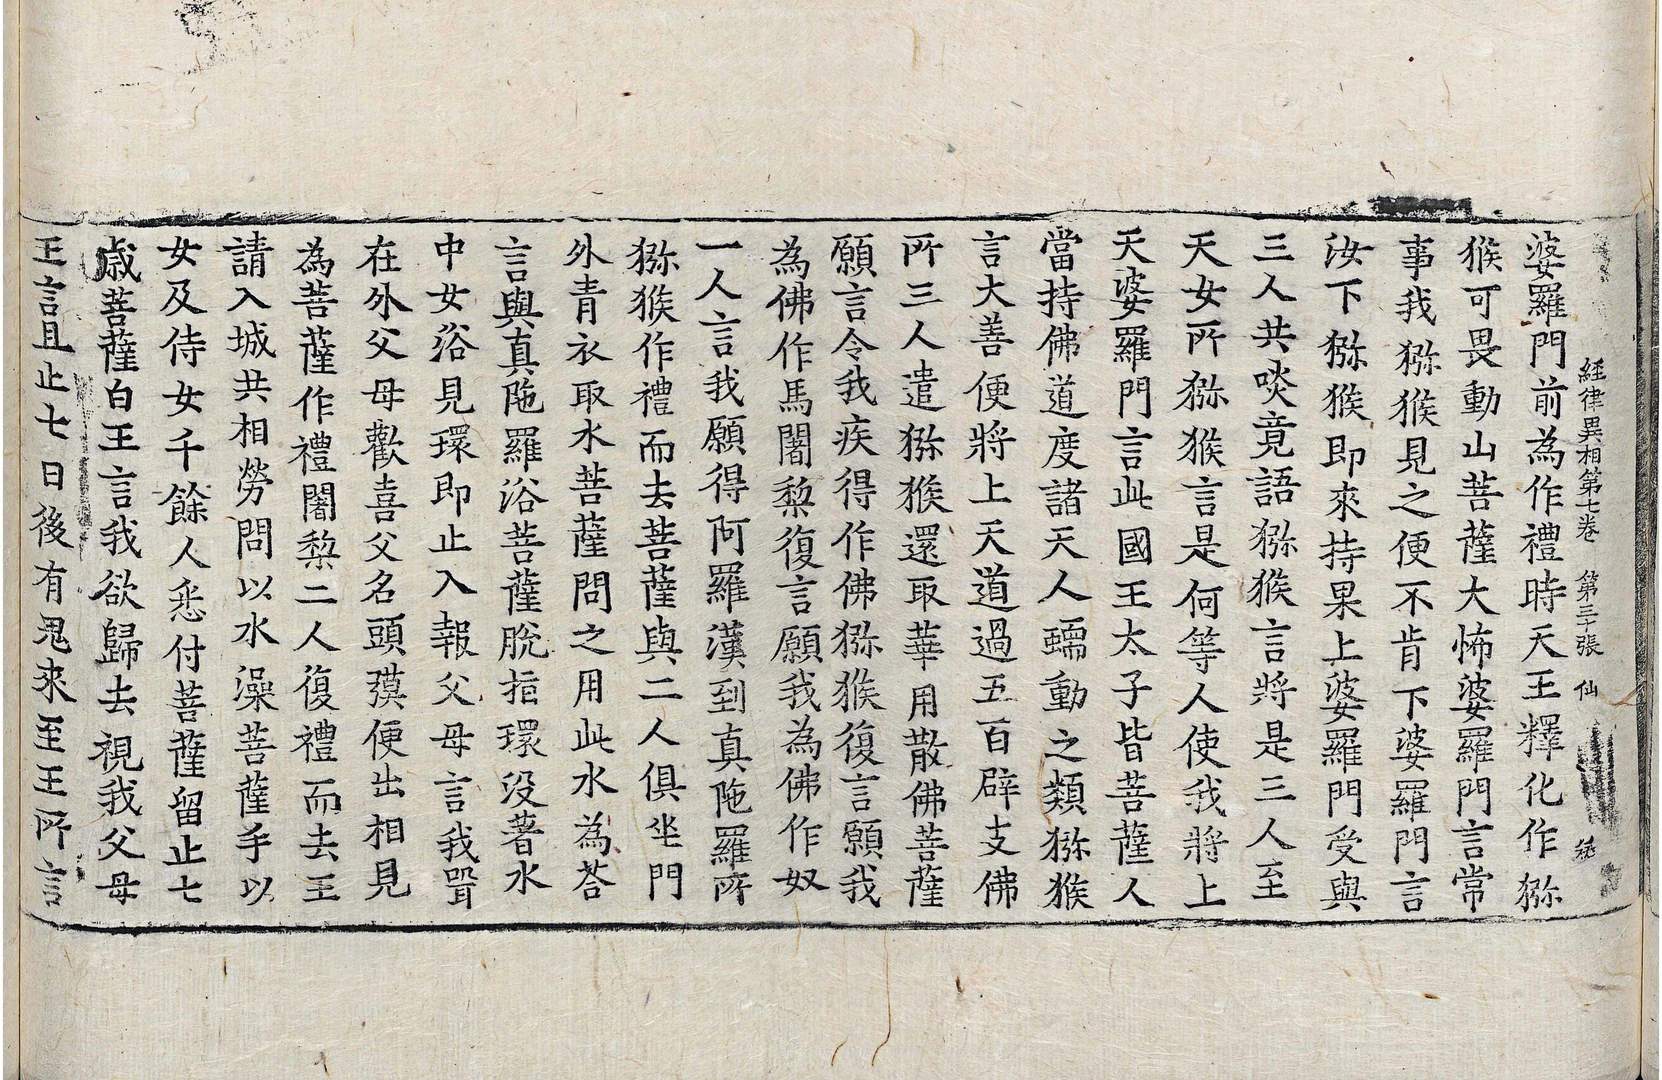 經律異相第七卷 第三十張 仙
婆羅門前為作禮時天王釋化作猕
猴可畏動山菩薩大怖婆羅門言常
事我猕猴見之便不肯下婆羅門言
汝下猕猴即來持果上婆羅門受與
三人共啖竟語猕猴言將是三人至
天女所猕猴言是何等人使我將上
天婆羅門言此國王太子皆菩薩人
當持佛道度諸天人蠕動之類猕猴
言大善便將上天道過五百辟支佛
所三人遣猕猴還取華用散佛菩薩
願言令我疾得作佛猕猴復言願我
為佛作馬闍梨復言願我為佛作奴
一人言我願得阿羅漢到真陁羅所
猕猴作禮而去菩薩與二人俱坐門
外青衣取水菩薩問之用此水為荅
言與真陁羅浴菩薩脫指環没著水
中女浴見環即止入報父母言我聟
在外父母歡喜父名頭䫉便出相見
為菩薩作禮闍梨二人復禮而去王
請入城共相勞問以水澡菩薩手以
女及侍女千餘人悉付菩薩留止七
歲菩薩白王言我欲歸去視我父母
王言且止七日後有鬼來至王所言